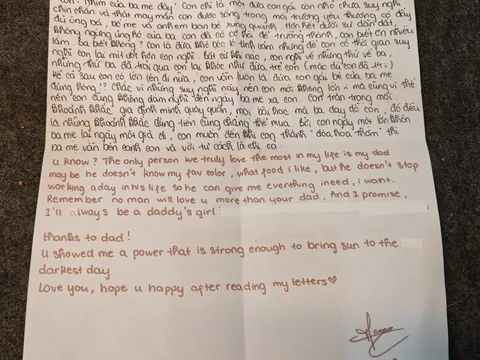 con. Thím của ba mẹ đây" con chỉ là một đứa con gái còn nhỏ chưa suy nghĩ
chín chắn và thật may mắn con được sống trong môi trường yêu thương có đầy
đủ ông bà, bố mẹ và anh em bạn bè xung quanh. Hơn hết dưới sự dẫn dắt,
không ngừng ủng hộ của ba con đã có cơ hội để trưởng thành, con biết ơn nhiều
lắm ba biết không? con là đứa khó bộc lộ tình cảm nhưng để con có thời gian suy
nghĩ con lại mít ướt hơn con nghĩ. Bất cứ khi nào, con nghĩ về những thứ về ba,
những thứ ba đã trải qua con lại khóc như đứa trẻ con (mặc dù con đã
Kể cả sau con có lớn lên đi nữa, con vẫn luôn là đứa con gái bé của ba mẹ
đúng không? Chắc vì những suy nghĩ này nên con mới không lớn mà cũng vì thế
nên con cũng không dám nghĩ đến ngày ba mẹ xa con. Con trân trọng mỗi
khoảnh khắc gia đình mình quây quần, mỗi bài học mà ba dạy đó con, đó đều
là những khoảnh khắc đáng tiền cũng chẳng thể mua. Bởi con ngày một lớn khôn
ba mẹ lại ngày một già đi, con muốn đến khi con thành "đóa hoa thơm" thì
ba mẹ vẫn bên cạnh con và với tư cách là chỉ có:
u know? The only person we truly love the most in my life is my dad
may be he doesn't know my fav color, what food i like, but he doesn't stop
working a day in his life so he can give me everthing i need, i want.
Remember no man will love u more than your dad. And I promise,
I'll always be a daddy's girl!
thanks to dad!
U showed me a power that is strong enough to bring sun to the
darkest day
Love you, hope u happy after reading my letters♡